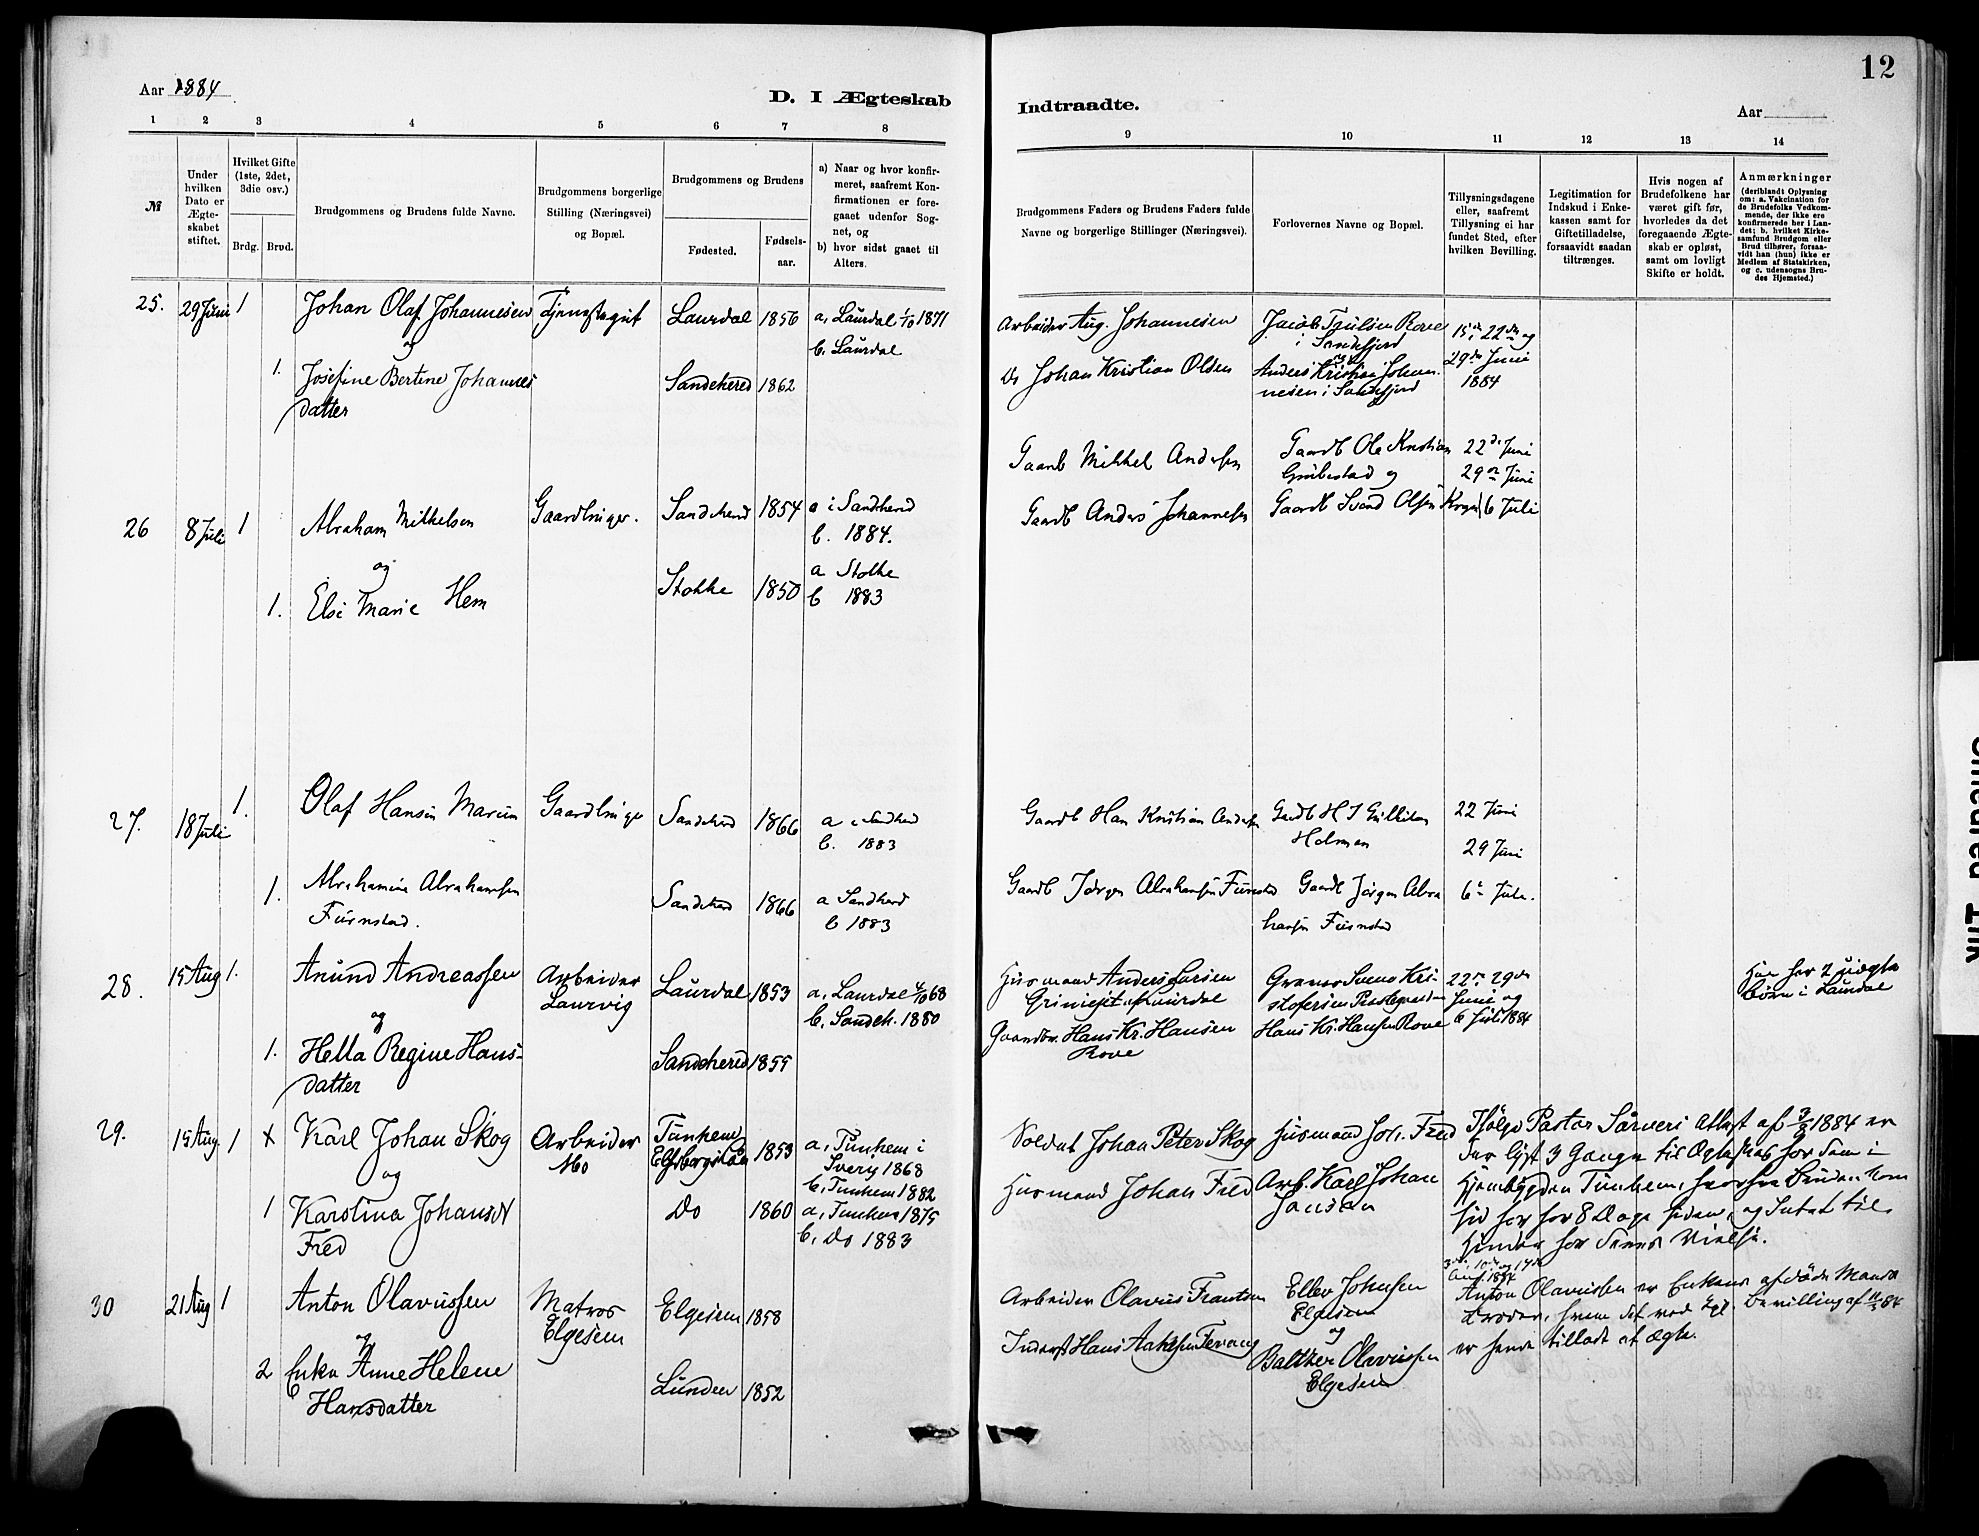 12
Aar 1884
D. I Ægteskab
Indtraadte.
Aar
1 2 3 4 5 6 7 8
9 10 11 12 13 14
№
Under
hvilken
Dato er
Ægte-
skabet
stiftet.
Hvilket Gifte
(1ste, 2det,
3die osv.)
Brdg.
Brud.
Brudgommens og Brudens fulde Navne.
Brudgommens borgerlige
Stilling (Næringsvei)
og Bopæl.
Brudgommens og Brudens
Fødested.
Fødsels-
aar.
a) Naar og hvor konfir-
meret, saafremt Kon-
firmationen er fore-
gaaet udenfor Sog-
net, og
b) hvor sidst gaaet til
Alters.
Brudgommens Faders og Brudens Faders fulde
Navne og borgerlige Stillinger (Næringsvei).
Forlovernes Navne og Bopæl.
Tillysningsdagene
eller, saafremt
Tillysning ei har
fundet Sted, efter
hvilken Bevilling.
Legitimation for
Indskud i Enke-
kassen samt for
Giftetilladelse,
forsaavidt saadan
tiltrænges.
Hvis nogen af
Brudefolkene har
været gift før,
hvorledes da det
foregaaende Ægte-
skab er opløst,
samt om lovligt
Skifte er holdt.
Anmærkninger
(deriblandt Oplysning
om: a. Vakcination for
de Brudefolks Vedkom-
mende, der ikke ere
konfirmerede her i Lan-
det; b. hvilket Kirke-
samfund Brudgom eller
Brud tilhører, forsaa-
vidt han (hun) ikke er
Medlem af Statskirken,
og c. udensogns Bru-
des Hjemsted.)
25. 29 Juni 1 Johan Olaf Johannesen Tjenestegut Laurdal 1856 a, Laurdal 1/10 1871
og b. Laurdal
1. Josefine Bertine Johannes Sandeherred 1862
datter
Arbeider Aug. Johannesen
Do Johan Kristian Olsen
Jacob Paulsen Rove
i Sandefjord
og
Anders Kristian Johan-
nesen i Sandefjord
15de 22de og
29de Juni
1884
26 8 Juli 1 Abraham Mikkelsen Gaardbruger. Sandeherred 1854 a i Sandeherred
b. 1884.
og
1. Else Marie Hem Stokke 1850 a Stokke
b 1883
Gaardb Mikkel Andersen
Gaardb Anders Johannesen
Gaardb Ole Kristian
og
Gaardb Svend Olsen
22de Juni
29de Juni
6 Juli
27. 18 Juli 1. Olaf Hansen Marum Gaardbruger Sandeherred 1866 a i Sandeherred
b. 1883
1. Abrahamine Abrahamsen Sandeherred 1866 a Sandeherred
Furustad. b 1883
Gaardb Han Kristian Andersen
Gaardb Jørgen Abrahamsen Furustad
Holmen
Gaardb Jørgen Abra
hamsen Furustad
22 Juni
29 Juni
6te Juli.
28. 15 Aug 1. Anund Andreassen Arbeider Laurdal 1853 a, Laurdal 4/10 68
Laurvig b, Sandeh. 1880
og
1. Hella Regine Hans- Sandeherred 1855
datter
Husmand Anders Larsen
Laurdal
Gaardbr. Hans Kr. Hansen
Rove
Svend Kri-
stofersen
Hans Kr. Hansen Rove
22de 29de
Juni og
6 Juli 1884
Har før 2 uægte
børn i Laurdal
29. 15 Aug. 1 Karl Johan Skog Arbeider Tunhem 1853 a, Tunhem i
Mo Elfsborgslän Sverig 1868
og b, Tunhem 1882
1 Karolina Johansdt Do 1860 a, Tunhem 1875
Fred b, Do 1883
Soldat Johan Peter Skog
Husmand Johan Fred
Husmand Joh. Fred
Arb. Karl Johan
Jansen
Ifølge Pastor Attest af 3/8 1884 er
der lyst 3 Gange til Ægteskab for dem i
Hjembygden Tunhem, hvorfra Bruden kom
hid for for 8 Dage siden, og Intet til
Hinder for deres Vielse.
30 21 Aug 1 Anton Olavussen Matros Elgesem 1858
og Elgesem
2 Enke Anne Helene Lunden 1852
Hansdatter
Arbeider Olavus Frantsen
Inderst Hans
Ellev Johnsen
Elgesem
og
Baltzer Olavussen
Elgesem
3de, 10de og 17de
Aug 1884
Anton Olavussen er Enkens afdøde Mands
Broder, hvem det ved Kgl Bevilling af 84
er hende tilladt at ægte.